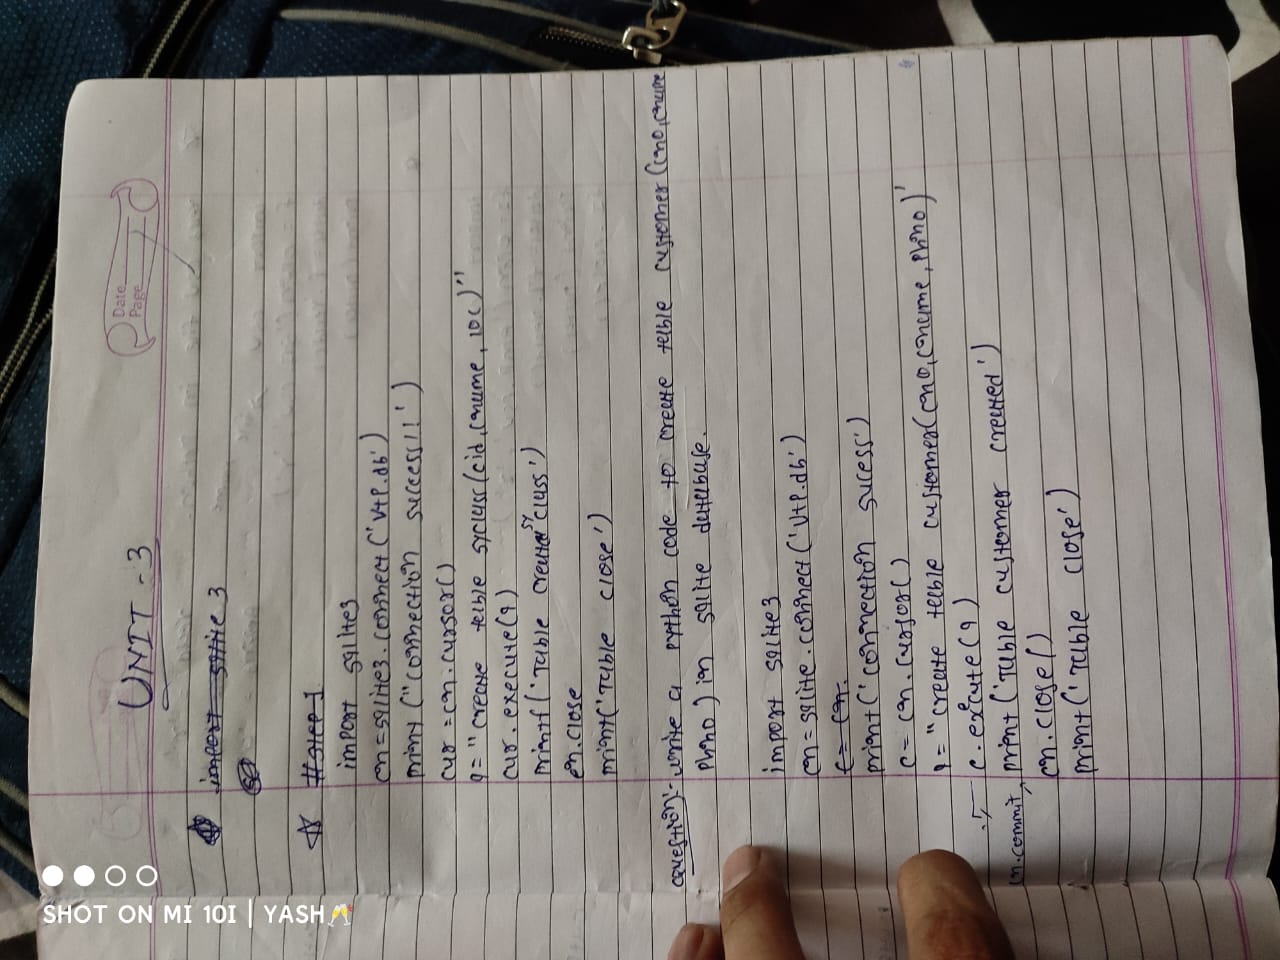 Date
Page
UNIT - 3
import sqlite 3
#step-1
import sqlite3
cn=sqlite3.connect('vtp.db')
print ("connection success!!')
cur =cn.cursor()
q= "create table syclass(cid,cname, loc)"
cur.execute(q)
print('Table created sy class')
cn.close
print('Table close')
question:- write a python code to create table customer (cno,cname
phno) in sqlite database.
import sqlite3
cn=sqlite.connect('vtp.db')
c= cn.
print('connection sucess')
c= cn.cursor()
q="create table customer(cno,cname,phno)'
c.excute(q)
cn.commit, print('Table customer created')
cn.close()
print('Table close')
SHOT ON MI 10I | YASH🥂